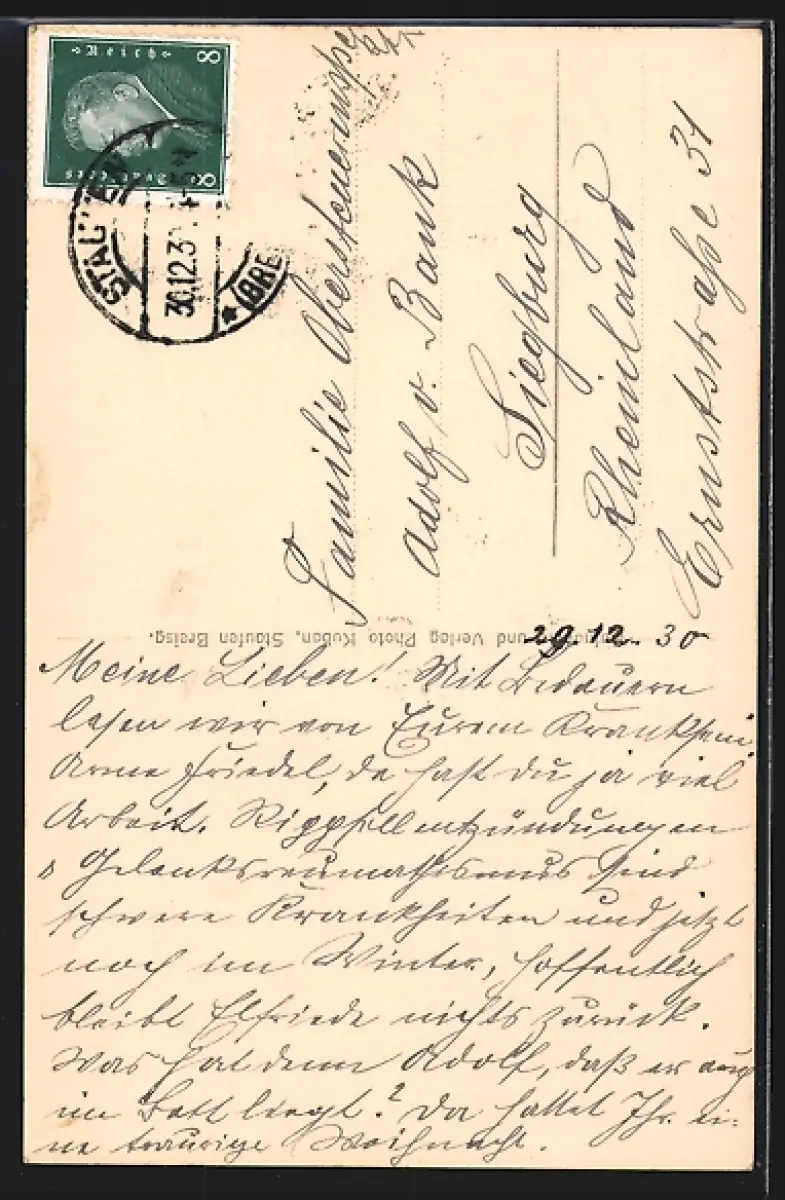 Deutsches Reich
8 8
STAUFEN (BRE
30.12.3
Familie Obersteuerinspektor
Adolf v. Bank
Siegburg
Rheinland
Ernststraße 31
und Verlag Photo Kuban, Staufen Breisg.
29.12.30
Meine Lieben! Mit Bedauern
lesen wir von Eurem Kranksein.
Arme Friedel, da hast Du ja viel
Arbeit. Rippfellentzündungen
u Gelenksreumathismus sind
schwere Krankheiten und jetzt
noch im Winter, hoffentlich
bleibt Elfriede nichts zurück.
Was hat denn Adolf, daß er auch
im Bett liegt? Da hattet Ihr ei-
ne traurige Weihnacht.